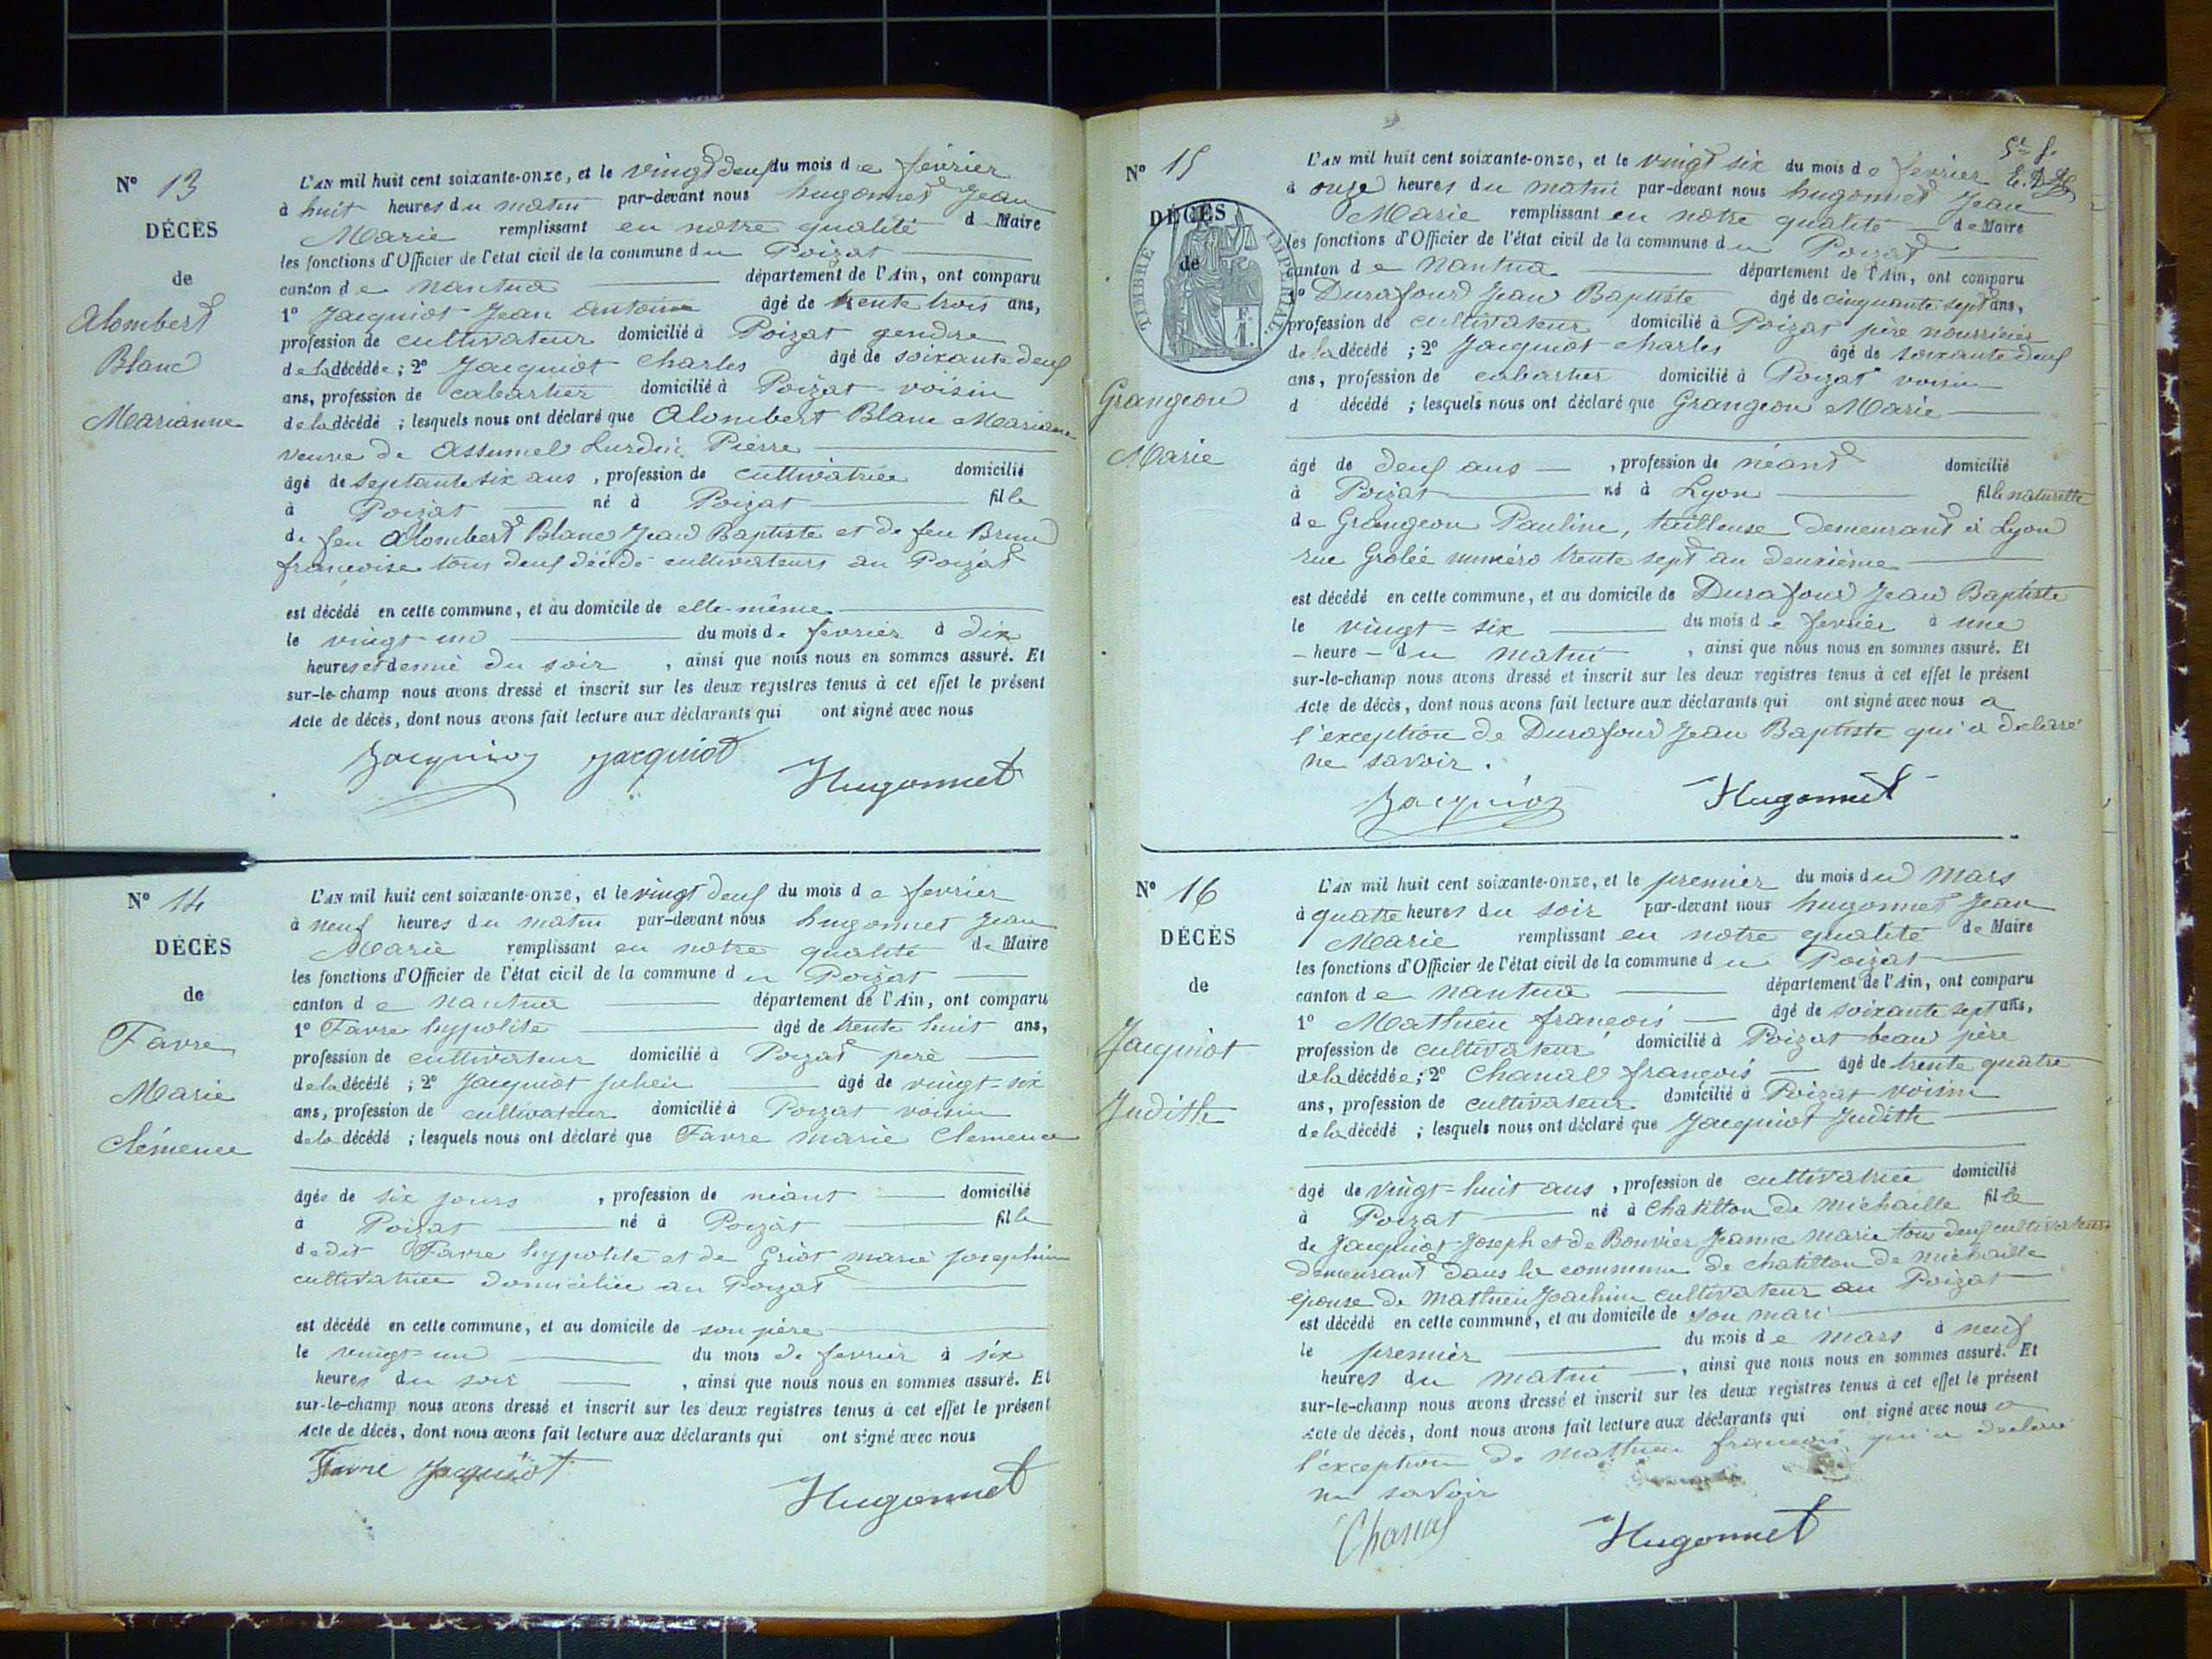 N° 13
DÉCÈS
de
Alombert
Blanc
Marianne
L'AN mil huit cent soixante-onze, et le vingt deux du mois de février
à huit heures du matin par-devant nous hugonnet Jean
Marie remplissant en notre qualité d Maire
les fonctions d'Officier de l'état civil de la commune du Poizat
canton de nantua département de l'Ain, ont comparu
1° Jacquiot Jean antoine âgé de trente trois ans,
profession de cultivateur domicilié à Poizat gendre
de la décédée ; 2° Jacquiot Charles âgé de soixante deux
ans, profession de cabartier domicilié à Poizat voisin
de la décédé ; lesquels nous ont déclaré que Alombert Blanc Marianne
veuve de Assumel Lurdin Pierre
âgé de septante six ans, profession de cultivatrice domicilié
à Poizat né à Poizat fille
de feu Alombert Blanc Jean Baptiste et de feu Brun
françoise tous deux décédé cultivateurs au Poizat
est décédé en cette commune, et au domicile de elle-même
le vingt-un du mois de fevrier à dix
heures et demie du soir, ainsi que nous nous en sommes assuré. Et
sur-le-champ nous avons dressé et inscrit sur les deux registres tenus à cet effet le présent
Acte de décès, dont nous avons fait lecture aux déclarants qui ont signé avec nous
Jacquiot Jacquiot Hugonnet
N° 14
DÉCÈS
de
Favre
Marie
Clémence
L'AN mil huit cent soixante-onze, et le vingt deux du mois de fevrier
à neuf heures du matin par-devant nous hugonnet Jean
Marie remplissant en notre qualité de Maire
les fonctions d'Officier de l'état civil de la commune du Poizat
canton de nantua département de l'Ain, ont comparu
1° Favre hypolite âgé de trente huit ans,
profession de cultivateur domicilié à Poizat père
de la décédé ; 2° Jacquiot Julien âgé de vingt-six
ans, profession de cultivateur domicilié à Poizat voisin
de la décédé ; lesquels nous ont déclaré que Favre Marie Clemence
âgée de six jours, profession de néant domicilié
à Poizat né à Poizat fille
de dit Favre hypolite et de Griot marie Josephine
cultivatrice domiciliée au Poizat
est décédé en cette commune, et au domicile de son père
le vingt-un du mois de fevrier à six
heures du soir, ainsi que nous nous en sommes assuré. Et
sur-le-champ nous avons dressé et inscrit sur les deux registres tenus à cet effet le présent
Acte de décès, dont nous avons fait lecture aux déclarants qui ont signé avec nous
Favre Jacquiot Hugonnet
N° 15
DÉCÈS
de
TIMBRE IMPÉRIAL
Grangeon
Marie
L'AN mil huit cent soixante-onze, et le vingt six du mois de fevrier
à onze heures du matin par-devant nous hugonnet Jean
Marie remplissant en notre qualité de Maire
les fonctions d'Officier de l'état civil de la commune du Poizat
canton de Nantua département de l'Ain, ont comparu
1° Durafour Jean Baptiste âgé de cinquante sept ans,
profession de cultivateur domicilié à Poizat père nourricier
de la décédé ; 2° Jacquiot Charles âgé de soixante deux
ans, profession de cabartier domicilié à Poizat voisin
d décédé ; lesquels nous ont déclaré que Grangeon Marie
âgé de deux ans, profession de néant domicilié
à Poizat né à Lyon fille naturelle
de Grangeon Pauline, tailleuse demeurant à Lyon
rue Grolée numéro trente sept au deuxième
est décédé en cette commune, et au domicile de Durafour Jean Baptiste
le vingt-six du mois de fevrier à une
heure du matin, ainsi que nous nous en sommes assuré. Et
sur-le-champ nous avons dressé et inscrit sur les deux registres tenus à cet effet le présent
Acte de décès, dont nous avons fait lecture aux déclarants qui ont signé avec nous a
l'exception de Durafour Jean Baptiste qui a déclaré
ne savoir.
Jacquiot Hugonnet
N° 16
DÉCÈS
de
Jacquiot
Judith
L'AN mil huit cent soixante-onze, et le premier du mois du mars
à quatre heures du soir par-devant nous hugonnet Jean
Marie remplissant en notre qualité de Maire
les fonctions d'Officier de l'état civil de la commune du Poizat
canton de Nantua département de l'Ain, ont comparu
1° Mathieu françois âgé de soixante sept ans,
profession de cultivateur domicilié à Poizat beau père
de la décédée ; 2° Chanal françois âgé de trente quatre
ans, profession de cultivateur domicilié à Poizat voisin
de la décédé ; lesquels nous ont déclaré que Jacquiot Judith
âgé de vingt-huit ans, profession de cultivatrice domicilié
à Poizat né à Chatillon de Michaille fille
de Jacquiot Joseph et de Bouvier Jeanne Marie tous deux cultivateurs
demeurant dans la commune de chatillon de michaille
épouse de Mathieu Joachim cultivateur au Poizat
est décédé en cette commune, et au domicile de son mari
le premier du mois de mars à neuf
heures du matin, ainsi que nous nous en sommes assuré. Et
sur-le-champ nous avons dressé et inscrit sur les deux registres tenus à cet effet le présent
Acte de décès, dont nous avons fait lecture aux déclarants qui ont signé avec nous a
l'exception de Mathieu françois qui a déclaré
ne savoir
Chanal Hugonnet